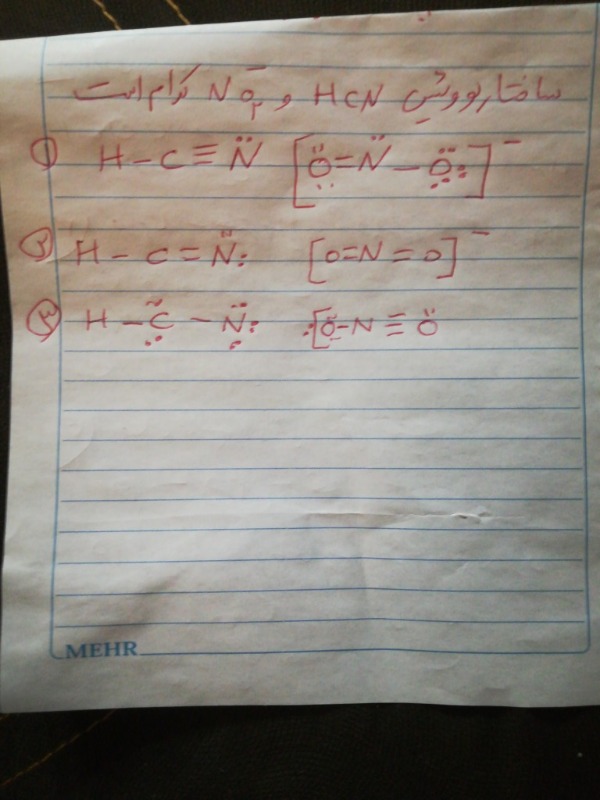 ساختار لوویس HCN و NO₂⁻ کدام است
① H – C ≡ N̈ [Ö̤ = N̈ – Ö̤:]⁻
② H – C = N̈: [O = N = O]⁻
③ H – C̤̈ – N̤̈: :[Ö̤ – N ≡ Ö
MEHR